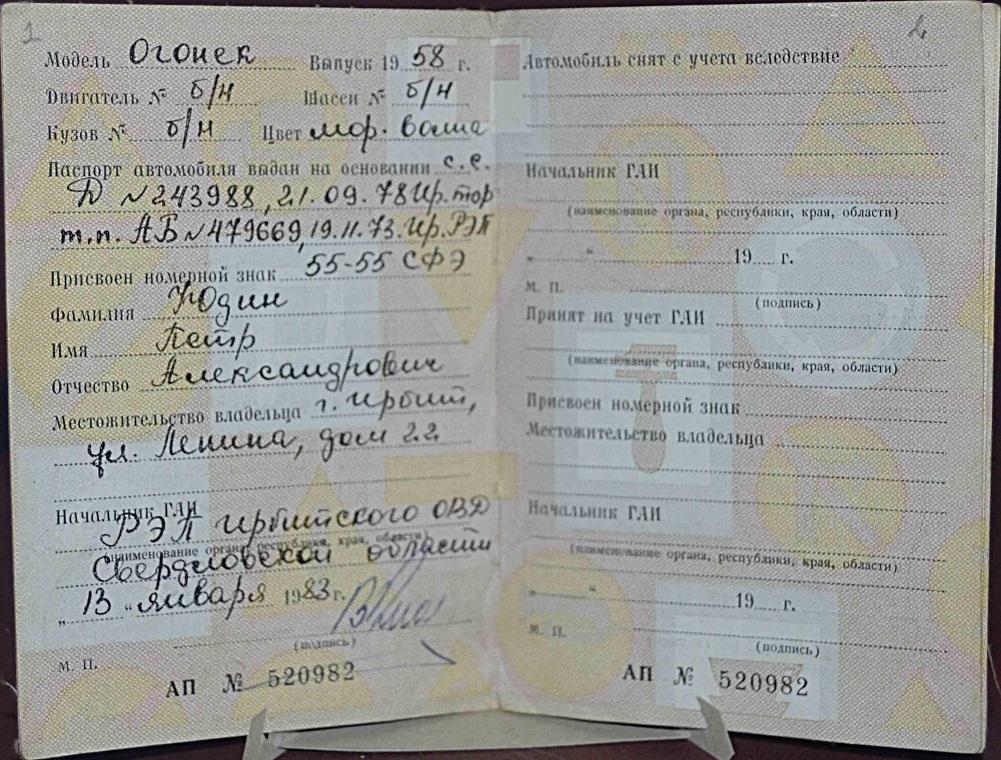 1
Модель Огонек Выпуск 19 58 г.
Двигатель № б/н Шасси № б/н
Кузов № б/н Цвет мор. волна
Паспорт автомобиля выдан на основании с.с.
Д №243988, 21.09.78 Ир. тор
т.п. АБ №479669, 19.11.73. Ир. РЭП
Присвоен номерной знак 55-55 СФЭ
Фамилия Юдин
Имя Петр
Отчество Александрович
Местожительство владельца г. Ирбит,
ул. Ленина, дом 22
Начальник ГАИ
РЭП Ирбитского ОВД
(наименование органа, республики, края, области)
Свердловской области
„ 13 “ января 1983 г.
(подпись)
М. П.
АП № 520982
2
Автомобиль снят с учета вследствие
Начальник ГАИ
(наименование органа, республики, края, области)
„ “ 19 г.
М. П.
(подпись)
Принят на учет ГАИ
(наименование органа, республики, края, области)
Присвоен номерной знак
Местожительство владельца
Начальник ГАИ
(наименование органа, республики, края, области)
„ “ 19 г.
М. П.
(подпись)
АП № 520982